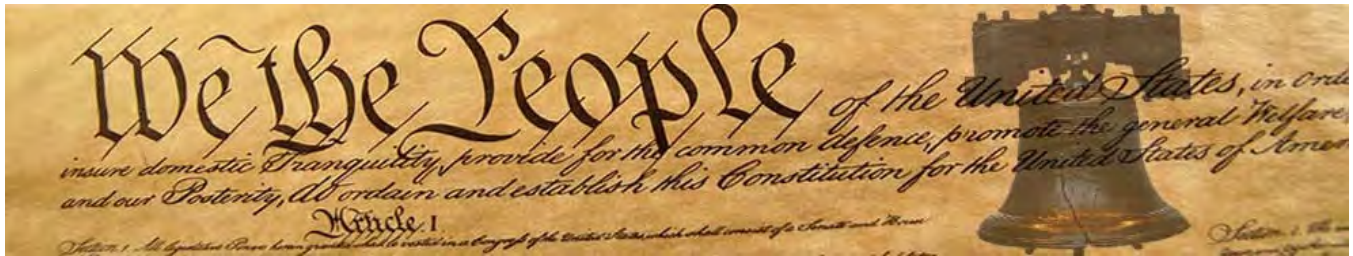 We the People of the United States, in orde
insure domestic Tranquility, provide for the common defence, promote the general Welfare,
and our Posterity, do ordain and establish this Constitution for the United States of Amer
Article. I
Section. 1. All legislative Powers herein granted shall be vested in a Congress of the United States, which shall consist of a Senate and House
Section. 2. The